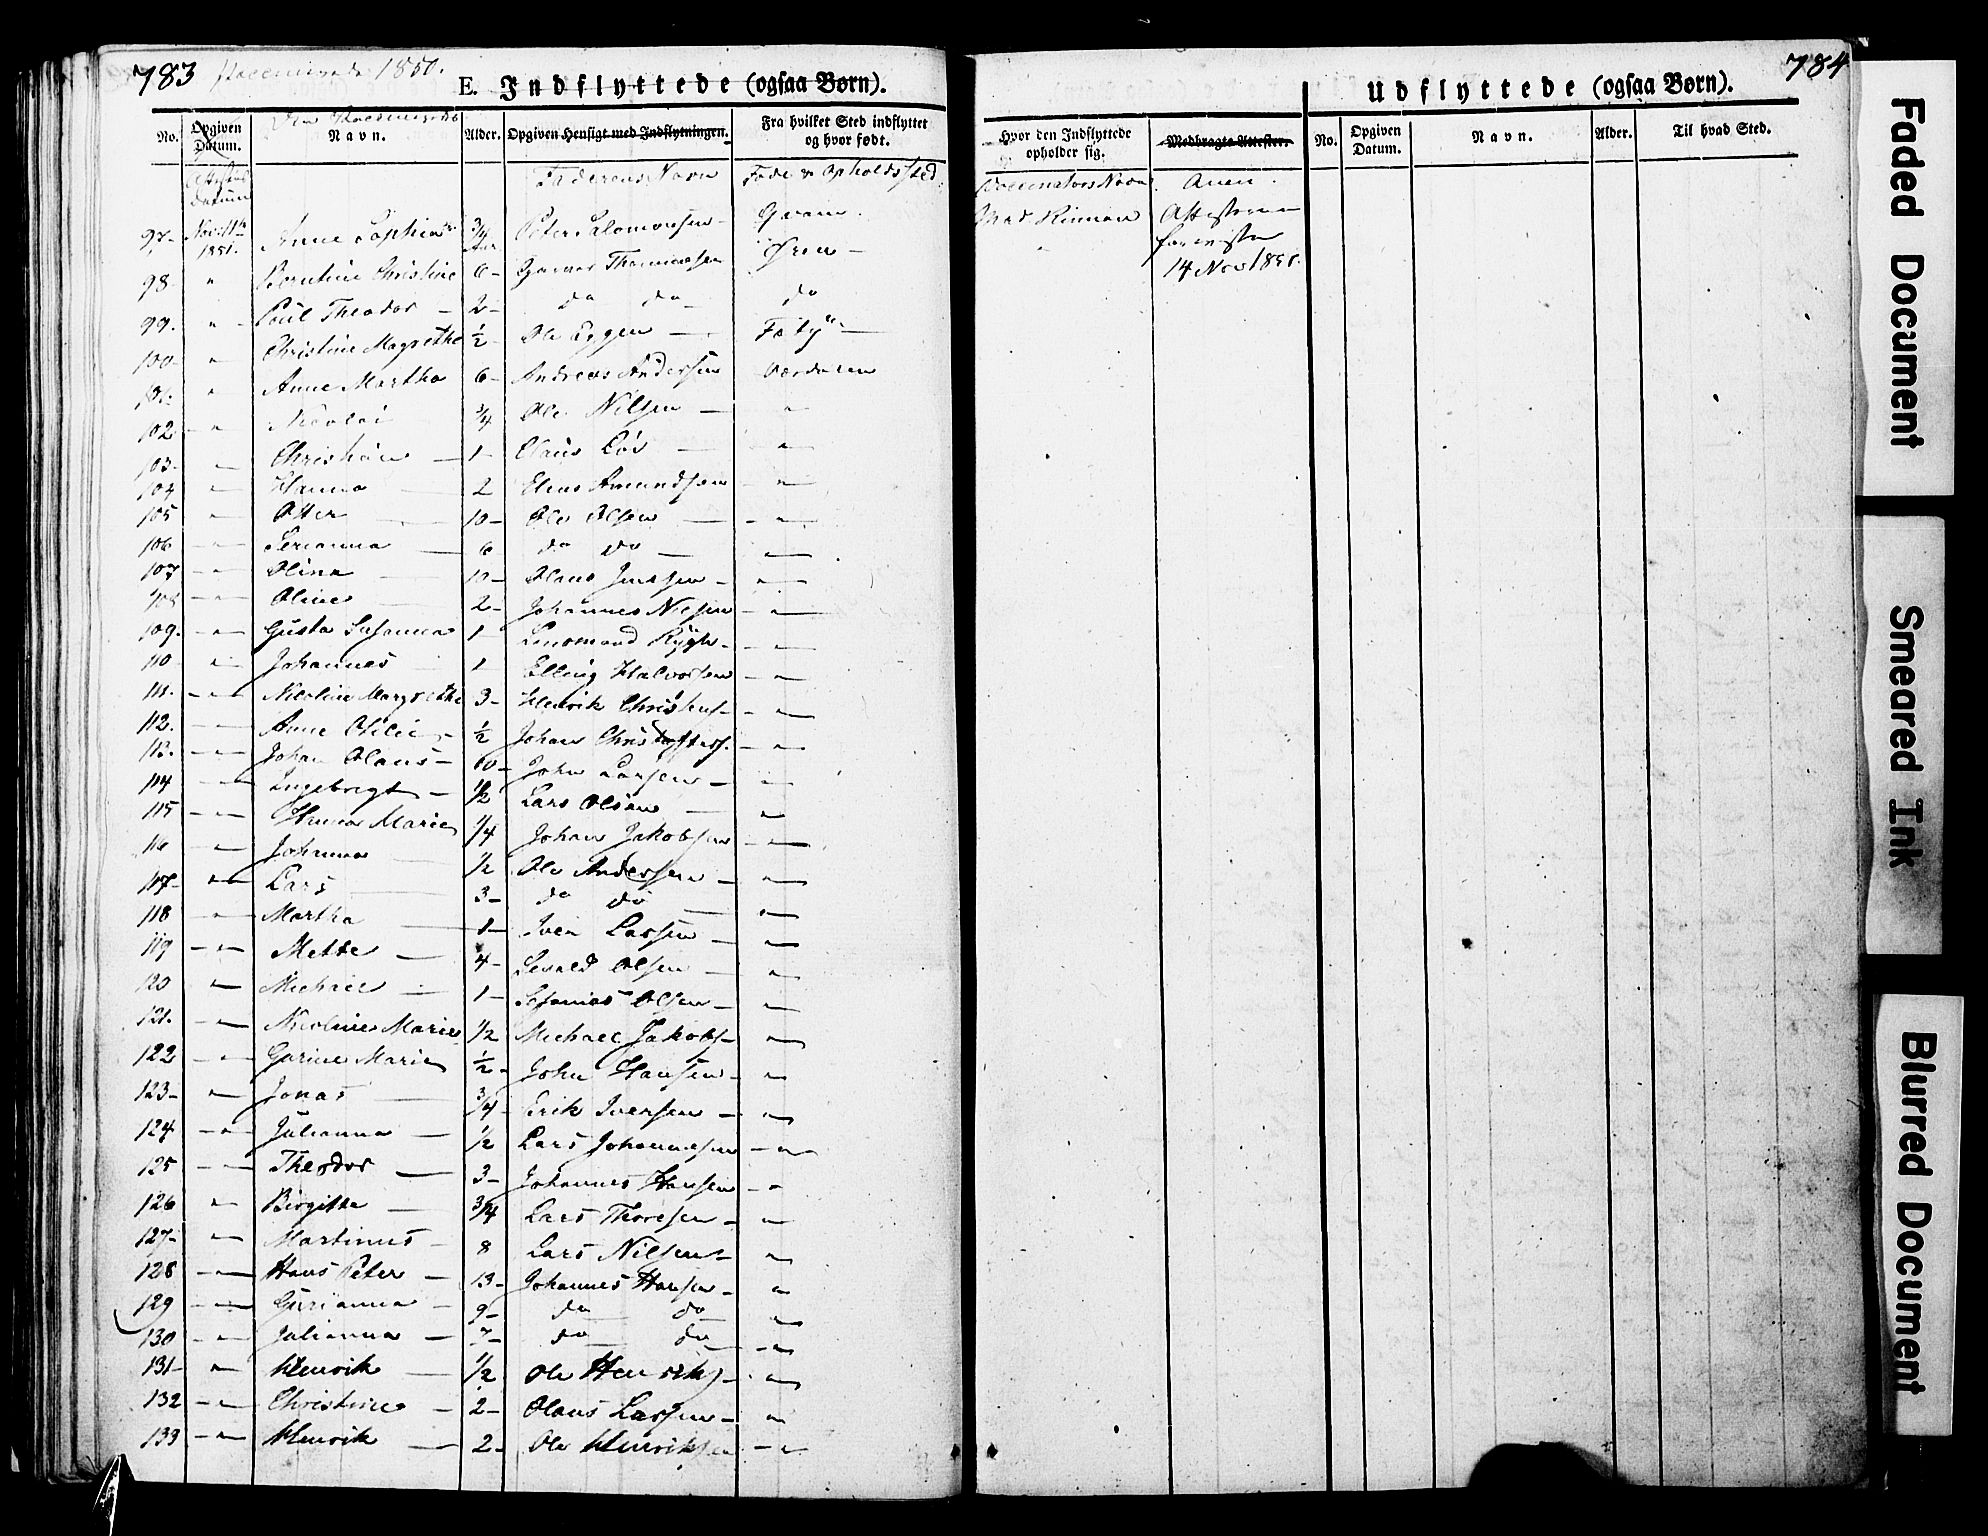 783 1851.
E. Indflyttede (ogsaa Børn).
No. Opgiven Datum. Navn. Alder. Opgiven Hensigt med Indflytningen. Fra hvilket Sted indflyttet og hvor født.
Datum Faderens Navn Føde og Opholdssted
97 Nov. 11te 1851. Anne Sophie 3/4 Peter Salomonsen
98 " Berntine Christine 6 Gunner Thomassen
99. " Poul Theodor 2 do do do
100 " Christine Magrethe 1/2 Ole Eggen
101. " Anne Martha 6 Andreas Andersen Værdalen
102 " Nicolai 3/4 Ole Nilsen "
103 " Christian 1 Claus "
104 " Hanna 2 Elias Amundsen "
105 " Otter 10 Ole Olsen "
106 " Serianna 6 do do "
107 " Olina 10 Olaus Jensen "
108 " Oline 2 Johannes Nilsen "
109. " Gusta Susanna 1 Rygh "
110 " Johannes 1 Elling Halvorsen "
111. " Nicoline Margrethe 3 Henrik "
112. " Anne Otilie 1/2 Johan "
113. " Johan Olaus 10 John Larsen "
114 " Ingebrigt 1/2 Lars Olsen "
115 " Hanna Marie 1/4 Johan Jakobsen "
116 " Johanna 1/2 Ole Andersen "
117 " Lars 3 do do "
118 " Martha 1 Iver Larsen "
119 " Mette 4 Sevald Olsen "
120 " Michael 1 Olsen "
121. " Nicoline Marie 1/2 Michael Jakobs "
122 " Gurine Marie 1/2 John Hansen "
123 " Jonas 3/4 Erik Iversen "
124 " Julianna 1/2 Lars Johannesen "
125 " Theodor 3 Johannes Hansen "
126 " Birgitta 3/4 Lars Thoresen "
127 " Martinus 8 Lars Nilsen "
128 " Hans Peter 13 Johannes Hansen "
129 " Gurianna 9 do do "
130 " Julianna 7 do do "
131 " Henrik 1/2 Ole Henriks "
132 " Christine 2 Olaus Larsen "
133 " Henrik 2 Ole Henriksen "
784
Udflyttede (ogsaa Børn).
Hvor den Indflyttede opholder sig. Medbragte Attester. No. Opgiven Datum. Navn. Alder. Til hvad Sted.
Navn
14 Nov
Faded Document
Smeared Ink
Blurred Document